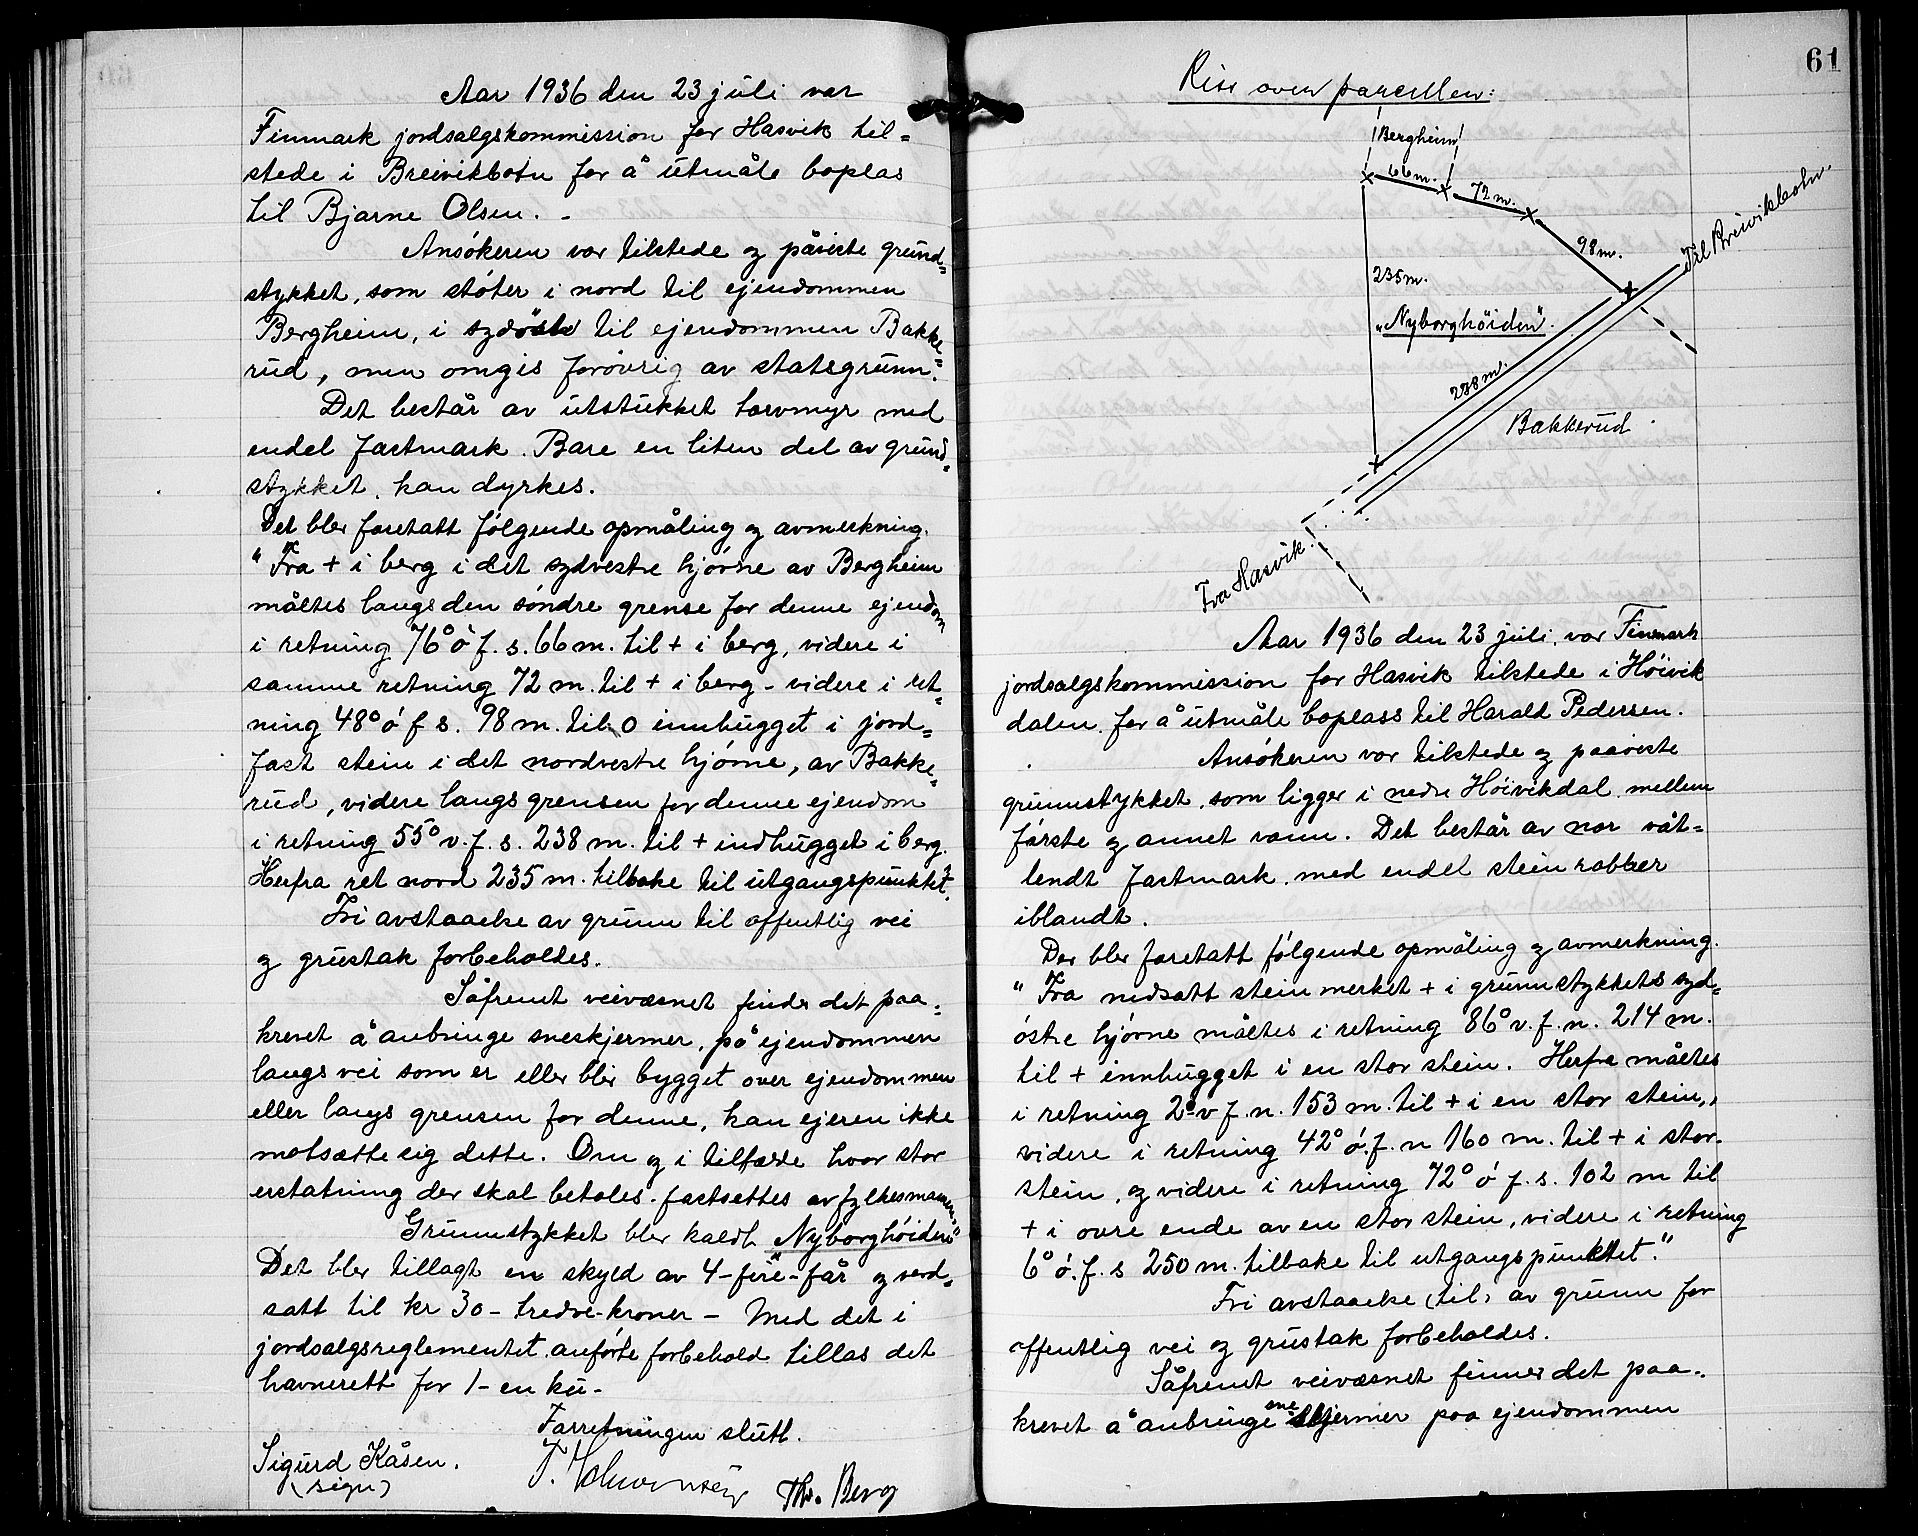 Aar 1936 den 23 juli var
Finmark jordsalgskommission for Hasvik til=
stede i Breivikbotn for å utmåle boplas
til Bjarne Olsen. -
Ansökeren var tilstede og påviste grund=
stykket, som stöter i nord til ejendommen
Bergheim, i sydöst til ejendommen Bakke=
rud, men omgis forövrig av statsgrunn.
Det består av utstukket torvmyr med
endel fastmark. Bare en liten del av grund=
stykket kan dyrkes.
Det blev foretatt fölgende opmåling og avmerkning.
"Fra + i berg i det sydvestre hjörne av Bergheim
måltes langs den söndre grense for denne ejendom
i retning 76° ö f. s. 66 m. til + i berg, videre i
samme retning 72 m. til + i berg - videre i ret=
ning 48° ö f s. 98 m. til o innhugget i jord=
fast stein i det nordvestre hjörne, av Bakke=
rud, videre langs grensen for denne ejendom
i retning 55° v. f. s. 238 m. til + indhugget i berg.
Herfra ret nord 235 m. tilbake til utgangspunktet."
Fri avstaaelse av grunn til offentlig vei
og grustak forbeholdes.
Såfremt veivæsnet finder det paa=
krevet å anbringe sneskjermer, på ejendommen
langs vei som er eller blir bygget over ejendommen
eller langs grensen for denne, kan ejeren ikke
motsætte sig dette. Om og i tilfælde hvor stor
erstatning der skal betales fastsettes av fylkesmannen.
Grunnstykket blev kaldt "Nyborghöiden"
Det blev tillagt en skyld av 4-fire-får og verd=
satt til kr 30 - tredve-kroner - Med det i
jordsalgsreglementet anförte forbehold tillas det
havnerett for 1 - en ku -
Forretningen slutt.
Sigurd Kåsen.
(sign)
Th. Berg
61
Riss over parcellen:
Bergheim
66 m.
72 m.
98 m.
Til Breivikbotn.
235 m.
"Nyborghöiden".
238 m.
Bakkerud.
Fra Hasvik.
Aar 1936 den 23 juli. var Finmark
jordsalgskommission for Hasvik tilstede i Höivik
dalen. for å utmåle boplass til Harald Pedersen.
Ansökeren var tilstede og paaviste
grunnstykket, som ligger i nedre Höivikdal mellem
förste og annet vann. Det består av nor våt=
lendt fastmark. med endel stein rabber
iblandt.
Der blev foretatt fölgende opmåling og avmerkning.
"Fra nedsatt stein merket + i grunnstykkets syd=
östre hjörne måltes i retning 86° v. f. n. 214 m.
til + innhugget i en stor stein. Herfra måltes
i retning 2° v f. n. 153 m. til + i en stor stein,
videre i retning 42° ö. f. n 160 m. til + i stor
stein, og videre i retning 72° ö f. s. 102 m til
+ i övre ende av en stor stein, videre i retning
6° ö. f. s 250 m. tilbake til utgangspunktet."
Fri avstaaelse (til) av grunn for
offentlig vei og grustak forbeholdes.
Såfremt veivæsnet finner det paa=
krevet å anbringe sneskjermer paa ejendommen